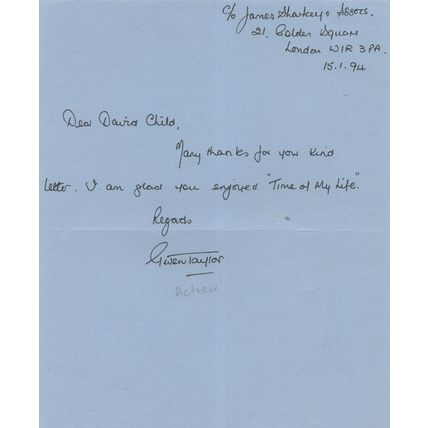 c/o James Sharkey & Assocs.
21, Golden Square
London W1R 3PA.
15.1.94
Dear David Child,
Many thanks for your kind
letter. I am glad you enjoyed "Time of My Life".
Regards
Gwen Taylor
Actress